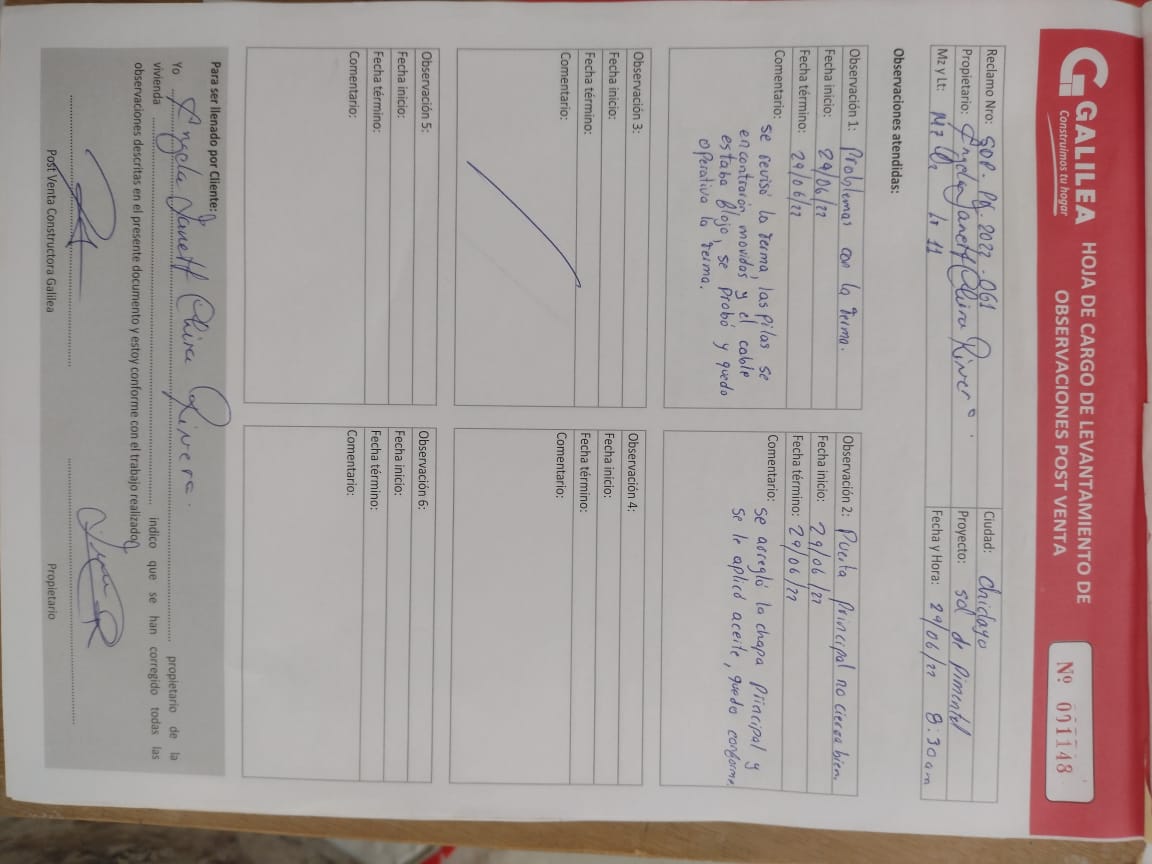 GALILEA
Construimos tu hogar
HOJA DE CARGO DE LEVANTAMIENTO DE
OBSERVACIONES POST VENTA
Nº 001148
Reclamo Nro: SDP. PG. 2022 - 061
Ciudad: Chiclayo
Propietario: Angela Janett Chira Rivera.
Proyecto: Sol de Pimentel
Mz y Lt: Mz Lt 11
Fecha y Hora: 29/06/22 8:30 am
Observaciones atendidas:
Observación 1: Problemas con la terma.
Fecha inicio: 29/06/22
Fecha término: 29/06/22
Comentario: se revisó la terma, las pilas se
encontrarón movidas y el cable
estaba flojo, se probó y quedo
operativa la terma.
Observación 2: Puerta principal no cierra bien
Fecha inicio: 29/06/22
Fecha término: 29/06/22
Comentario: se arregló la chapa principal y
se le aplicó aceite, quedo conforme
Observación 3:
Fecha inicio:
Fecha término:
Comentario:
Observación 4:
Fecha inicio:
Fecha término:
Comentario:
Observación 5:
Fecha inicio:
Fecha término:
Comentario:
Observación 6:
Fecha inicio:
Fecha término:
Comentario:
Para ser llenado por Cliente:
Yo Angela Janett Chira Rivera. propietario de la
vivienda indico que se han corregido todas las
observaciones descritas en el presente documento y estoy conforme con el trabajo realizado.
Post Venta Constructora Galilea
Propietario